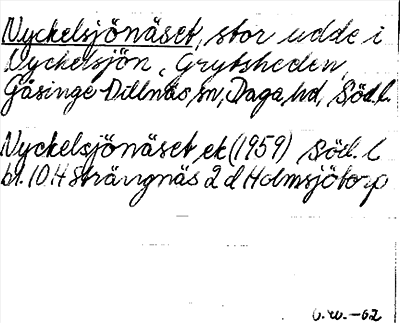 Nyckelsjönäset, stor udde i
Nyckelsjön, Grytsheden,
Gåsinge-Dillnäs sn, Daga hd, Söd. l.
Nyckelsjönäset ek (1959) Söd. l
bl. 10 H Strängnäs 2 d Holmsjötorp
-62